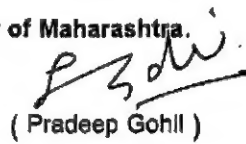 of Maharashtra.
( Pradeep Gohil )